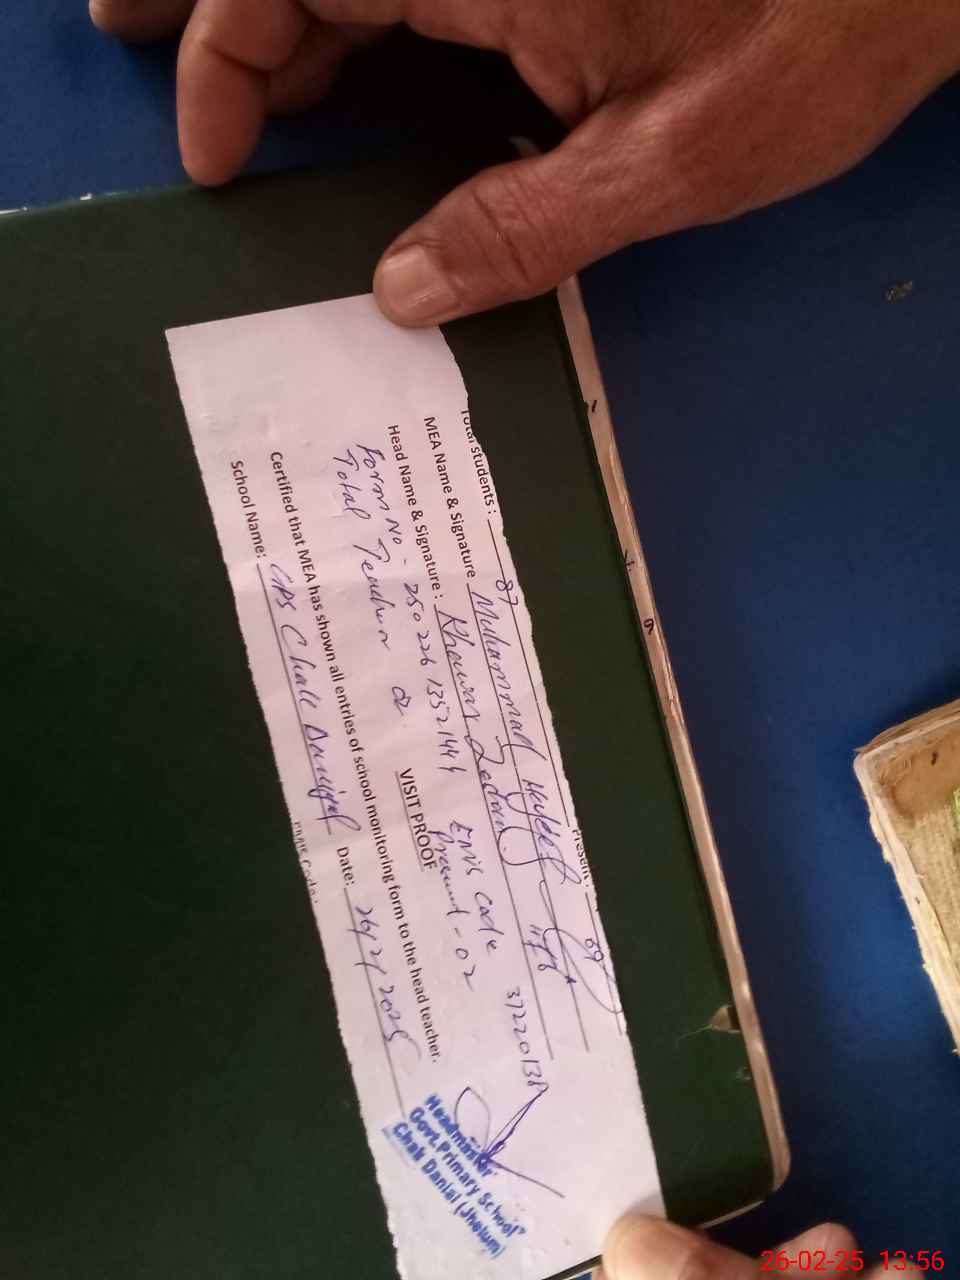 Total students: 87 Present: 69
MEA Name & Signature Muhammad
Head Name & Signature: Khawar
Form No - 250226 1352144 Emis Code 37220138
Total Teacher 02 Present - 02
VISIT PROOF
Certified that MEA has shown all entries of school monitoring form to the head teacher.
School Name: GPS Chak Danial Date: 26/2/2025
Headmaster
Govt. Primary School
Chak Danial (Jhelum)
26-02-25 13:56